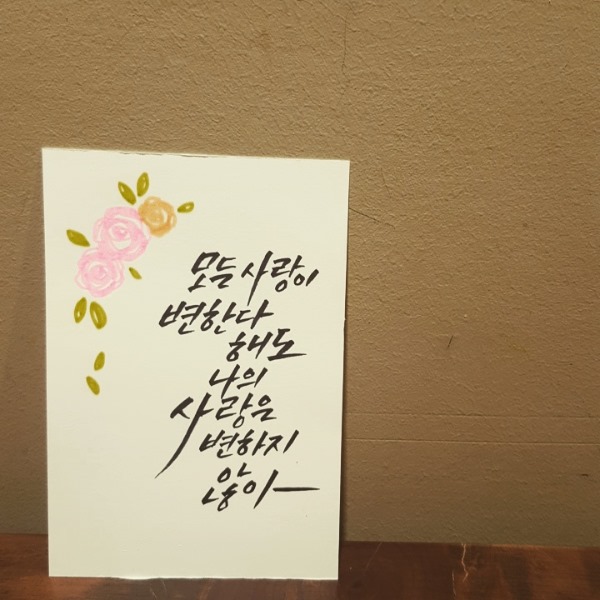 모든 사랑이
변한다
해도
나의
사랑은
변하지
않아